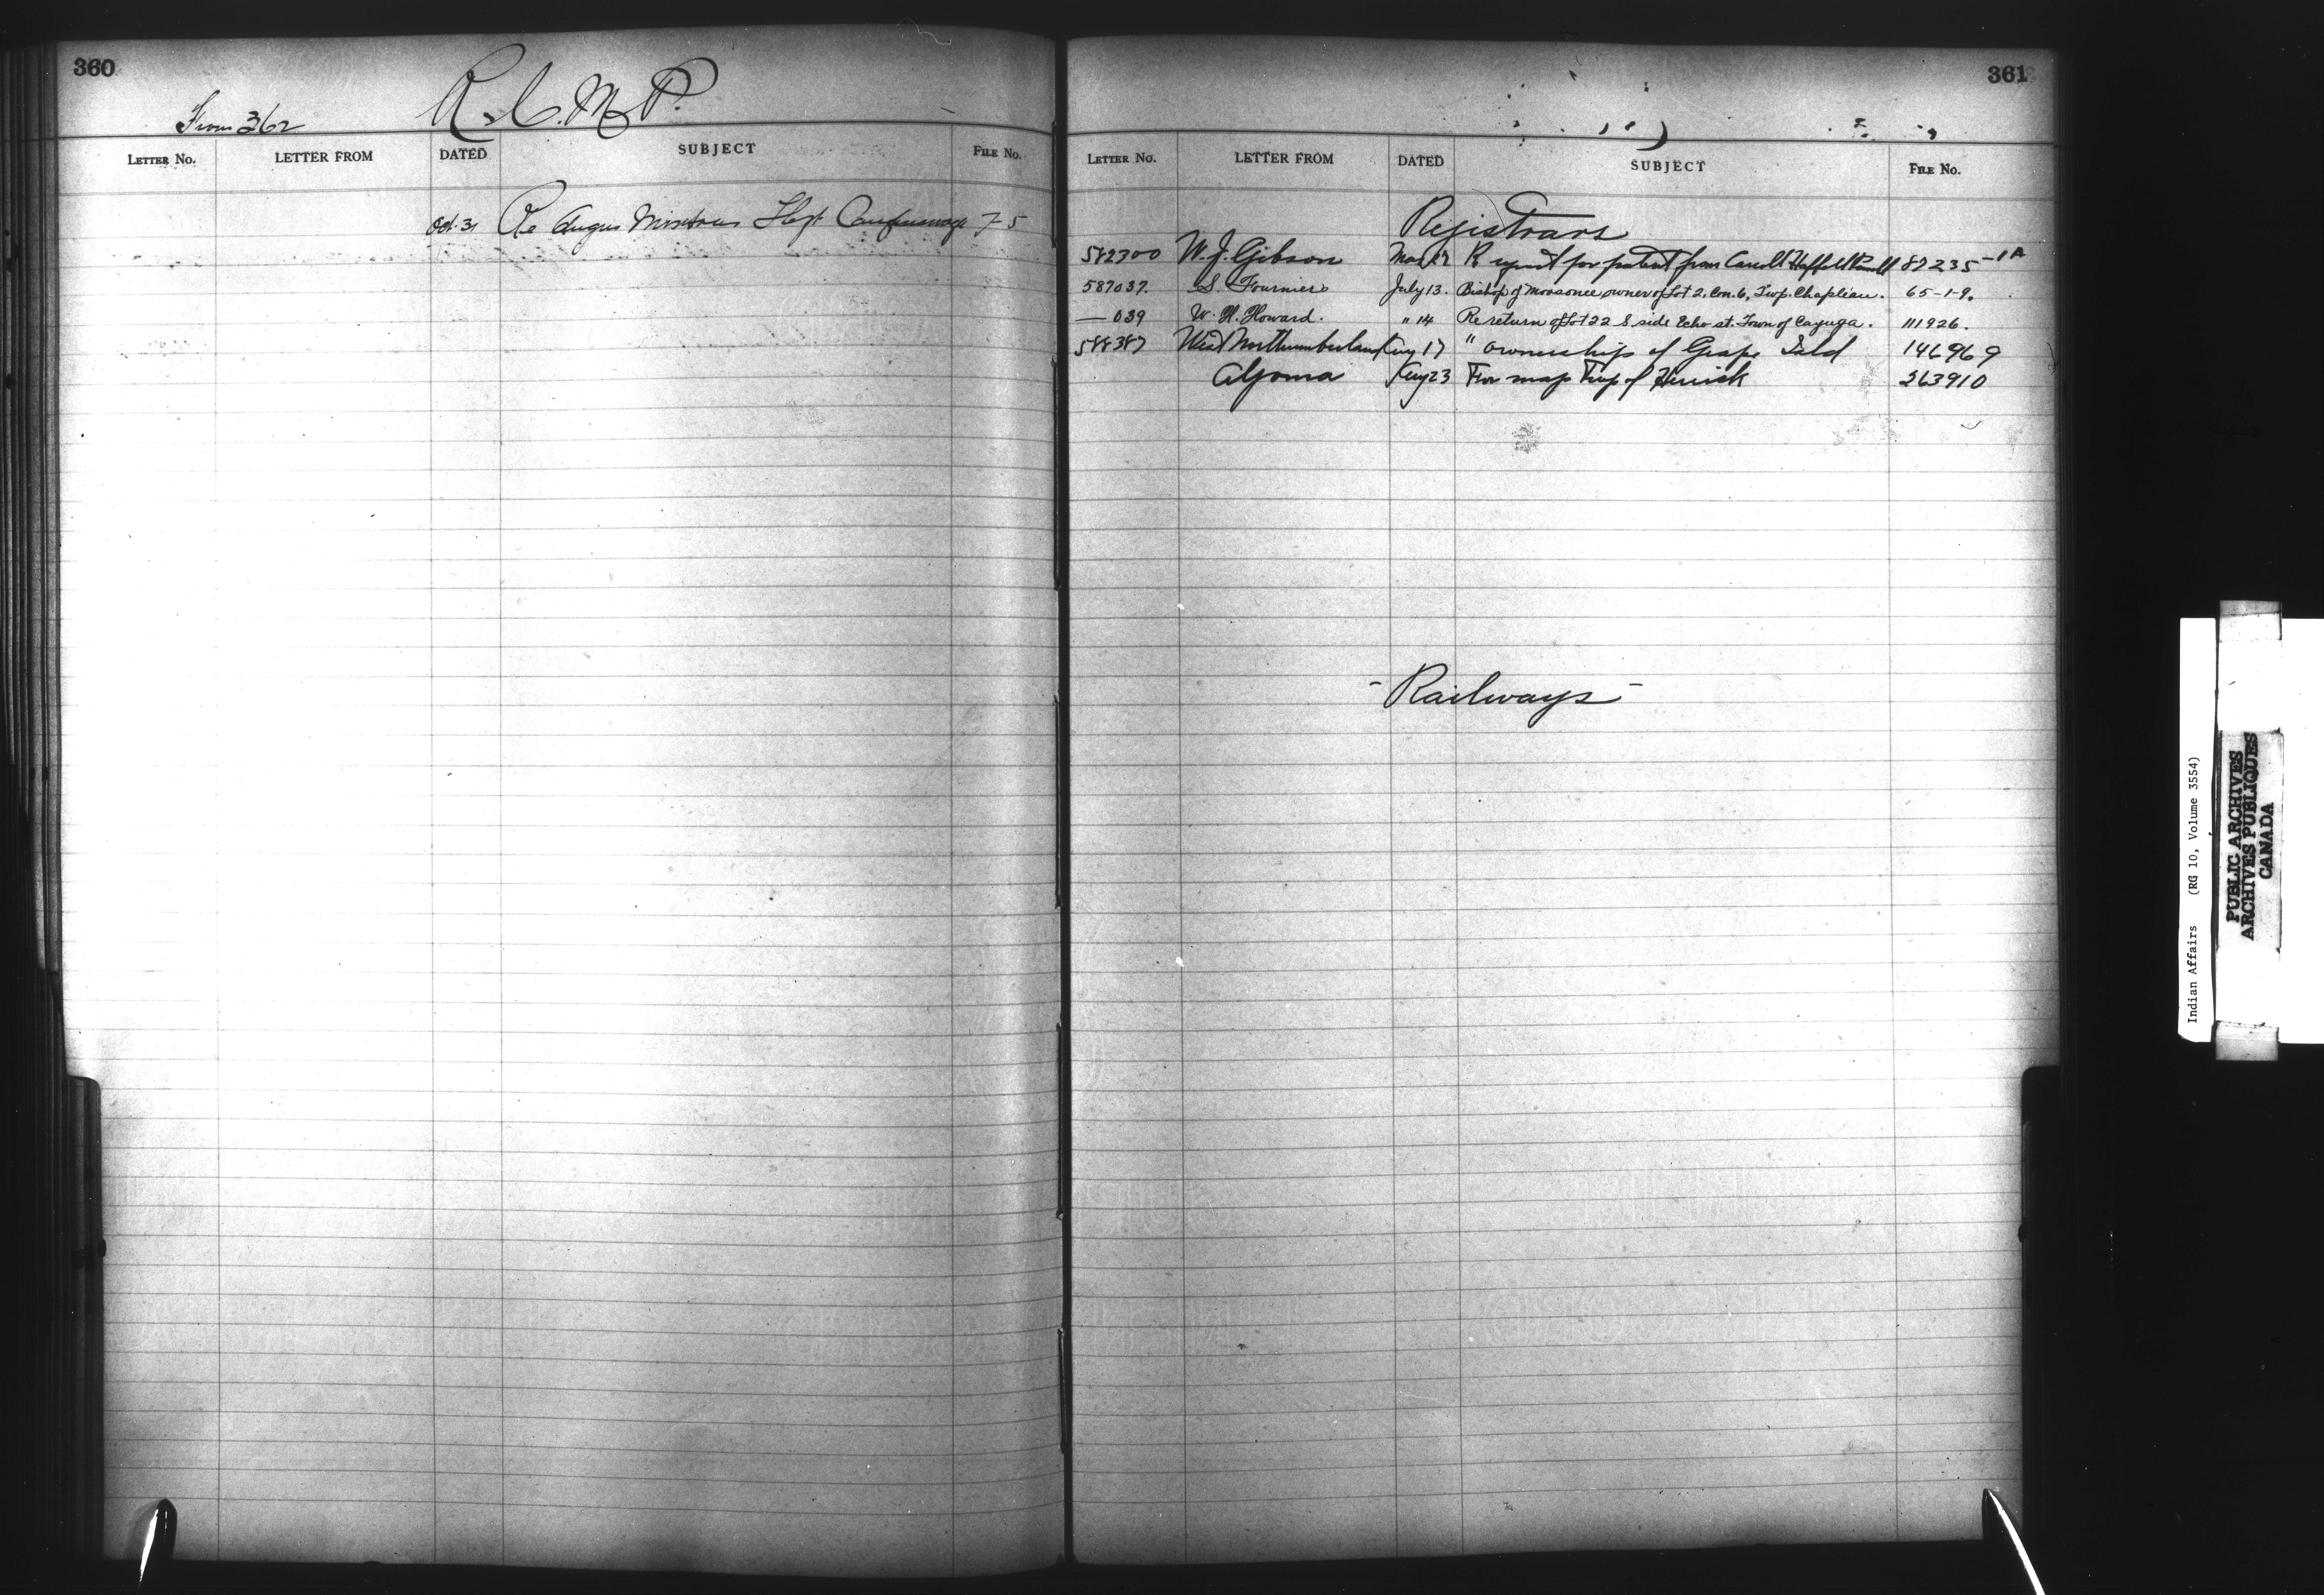 360
From 362
R.C.M.P.
LETTER No. LETTER FROM DATED SUBJECT FILE No.
Oct. 31 Re Angus 7-5
361
LETTER No. LETTER FROM DATED SUBJECT FILE No.
Registrars
582300 W. J. Gibson Mar 17 for patent from 87235-1A
587037. S. Fournier July 13. Bishop of Moosonee owner of Lot 2, Con. 6, Twp. Chapleau. 65-1-9.
— 039 W. H. Howard. " 14 Re return of Lot 22 S side Echo st. Town of Cayuga. 111926.
588387 West Northumberland Aug 17 " ownership of Grape Isld 146969
Algoma Aug 23 For map Twp of Herrick 263910
- Railways -
Indian Affairs (RG 10, Volume 3554)
PUBLIC ARCHIVES
ARCHIVES PUBLIQUES
CANADA